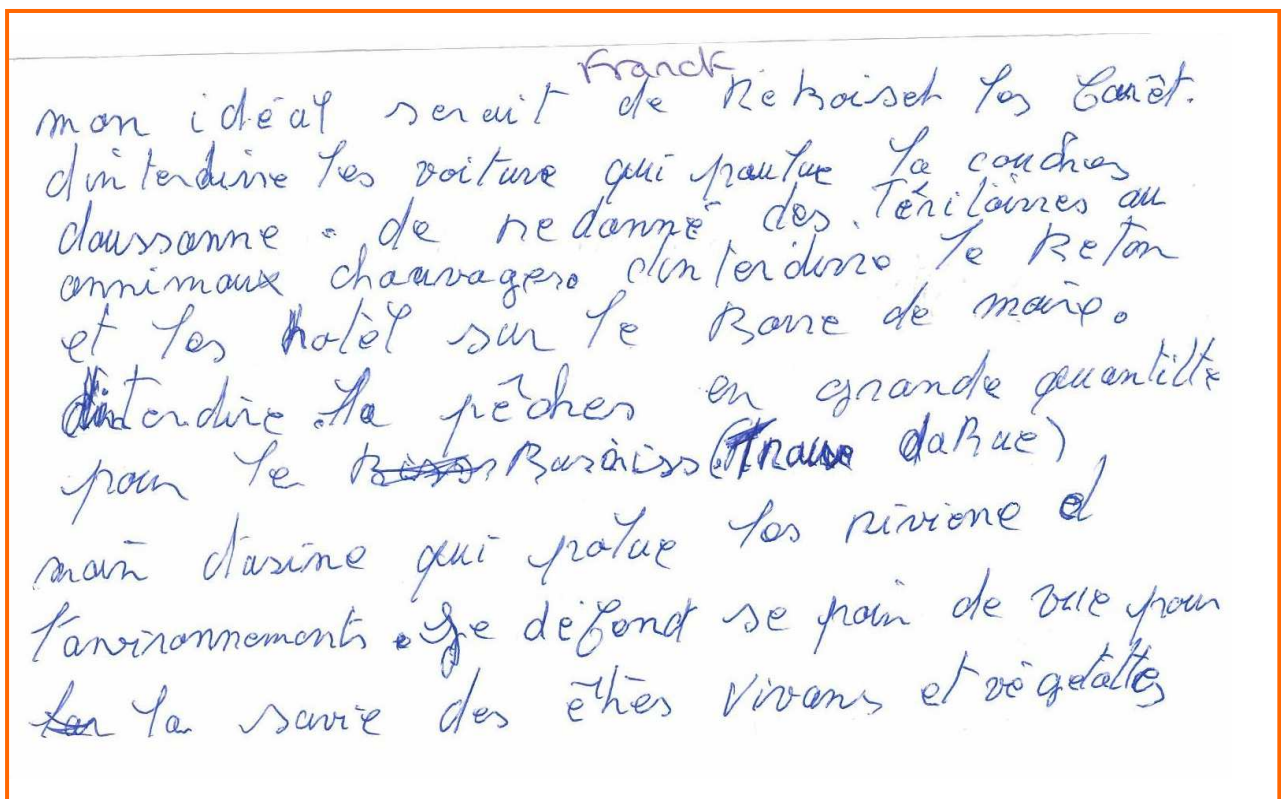 Franck
mon idéal serait de Reboiser les forêt.
d'interdirre les voiture qui poulue la couches
daussonne. de redonné des Téritoirres au
annimaux chauvages. d'interdirre le Beton
et les hotêl sur le Borre de maire.
dintendire la pêches en grande quantitte
pour le Busaiss (Trause daRue)
main d'usine qui polue les riviere et
l'anvironnements. Je défend se poin de vue pour
la savie des êtres vivans et végétalles